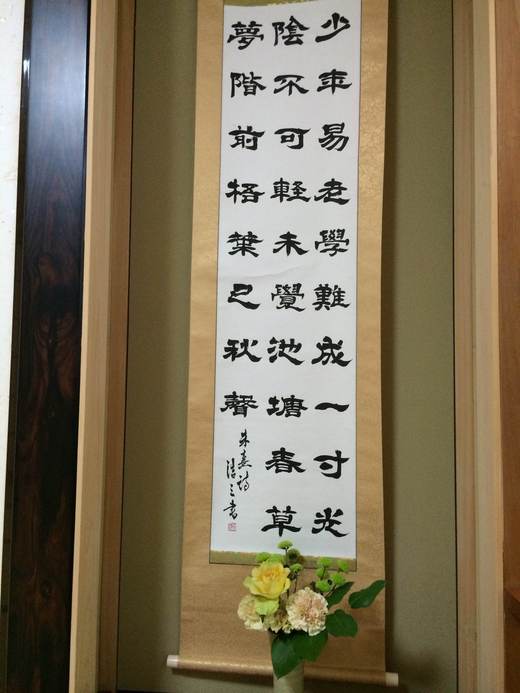 少年易老學難成一寸光
陰不可輕未覺池塘春草
夢階前梧葉已秋聲
朱熹詩